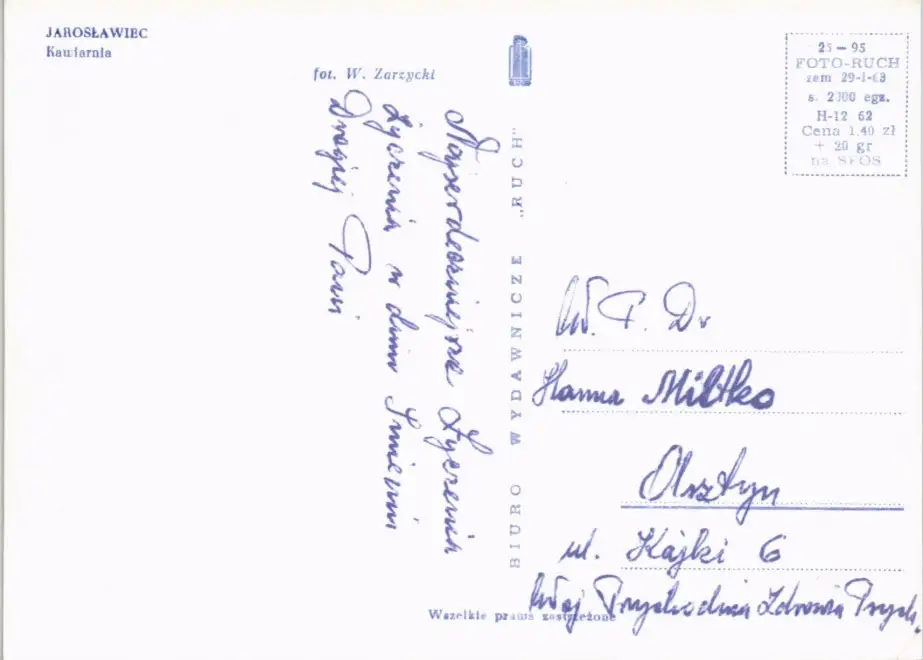 JAROSŁAWIEC
Kawiarnia
fot. W. Zarzycki
Najserdeczniejsze życzenia
życzenia w dniu Imienin
Drogiej Pani
BIURO WYDAWNICZE „RUCH"
25-95
FOTO-RUCH
zam 29-I-63
s. 2000 egz.
H-12 62
Cena 1.40 zł
+ 20 gr
na SFOS
W. P. Dr
Hanna Miltko
Olsztyn
ul. Kajki 6
Woj Przychodnia Zdrowia Psych.
Wszelkie prawa zastrzeżone